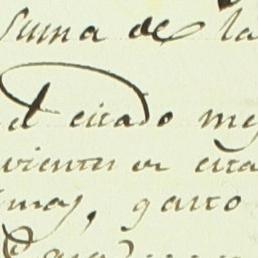 suma de la
el citado me
vientes en esta
mas, gasto